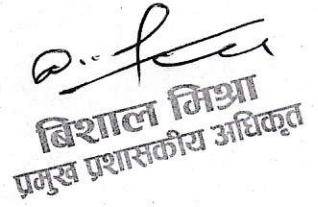 बिशाल मिश्रा
प्रमुख प्रशासकीय अधिकृत